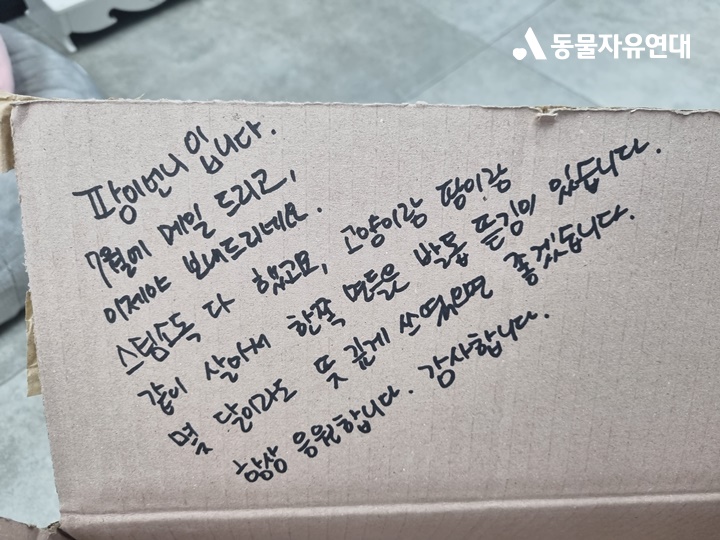 동물자유연대
팡이언니 입니다.
7월에 메일 드리고,
이제야 보내드리네요.
스팀소독 다 했고요, 고양이랑 팡이랑
같이 살아서 한쪽 면들은 발톱 뜯김이 있습니다.
몇 달이라도 뜻 깊게 쓰였으면 좋겠습니다.
항상 응원합니다. 감사합니다.